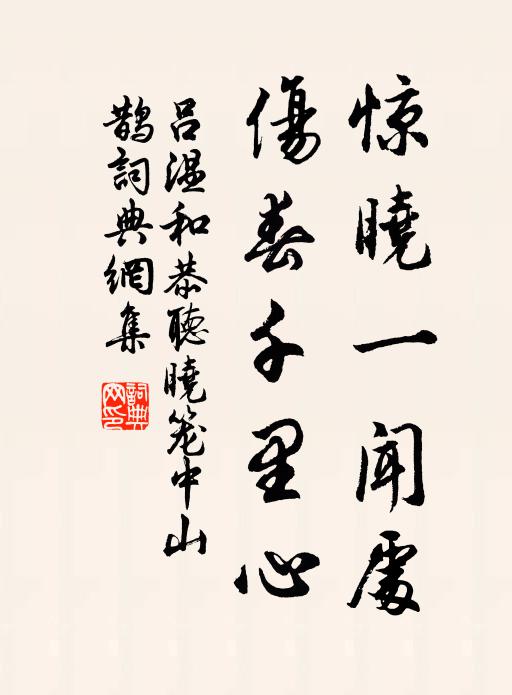 惊曉一闻處
傷春千里心
吕温和恭聽曉笼中山
鹊詞典網集
詞典
网印